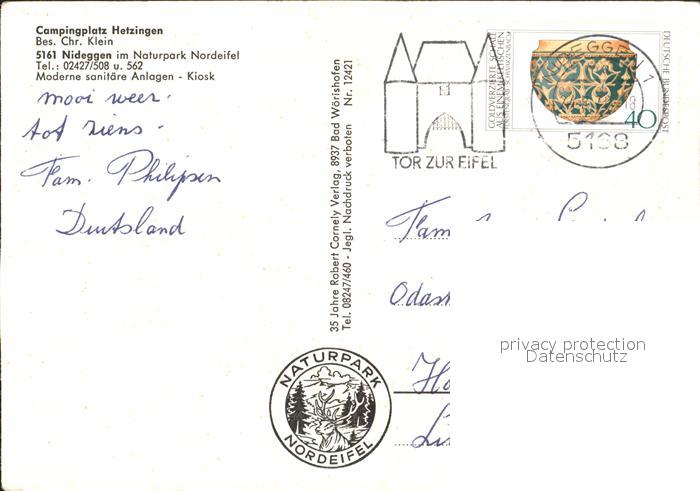 Campingplatz Hetzingen
Bes. Chr. Klein
5161 Nideggen im Naturpark Nordeifel
Tel.: 02427/508 u. 562
Moderne sanitäre Anlagen - Kiosk
mooi weer.
tot ziens.
Fam. Philipsen
Deutsland
35 Jahre Robert Cornely Verlag, 8937 Bad Wörishofen
Tel. 08247/460 - Jegl. Nachdruck verboten Nr. 12421
TOR ZUR EIFEL
GOLDVERZIERTE SCHALE
AUS EINEM RÖMISCHEN
DEUTSCHE BUNDESPOST
40
Fam
privacy protection
Datenschutz
NATURPARK
NORDEIFEL